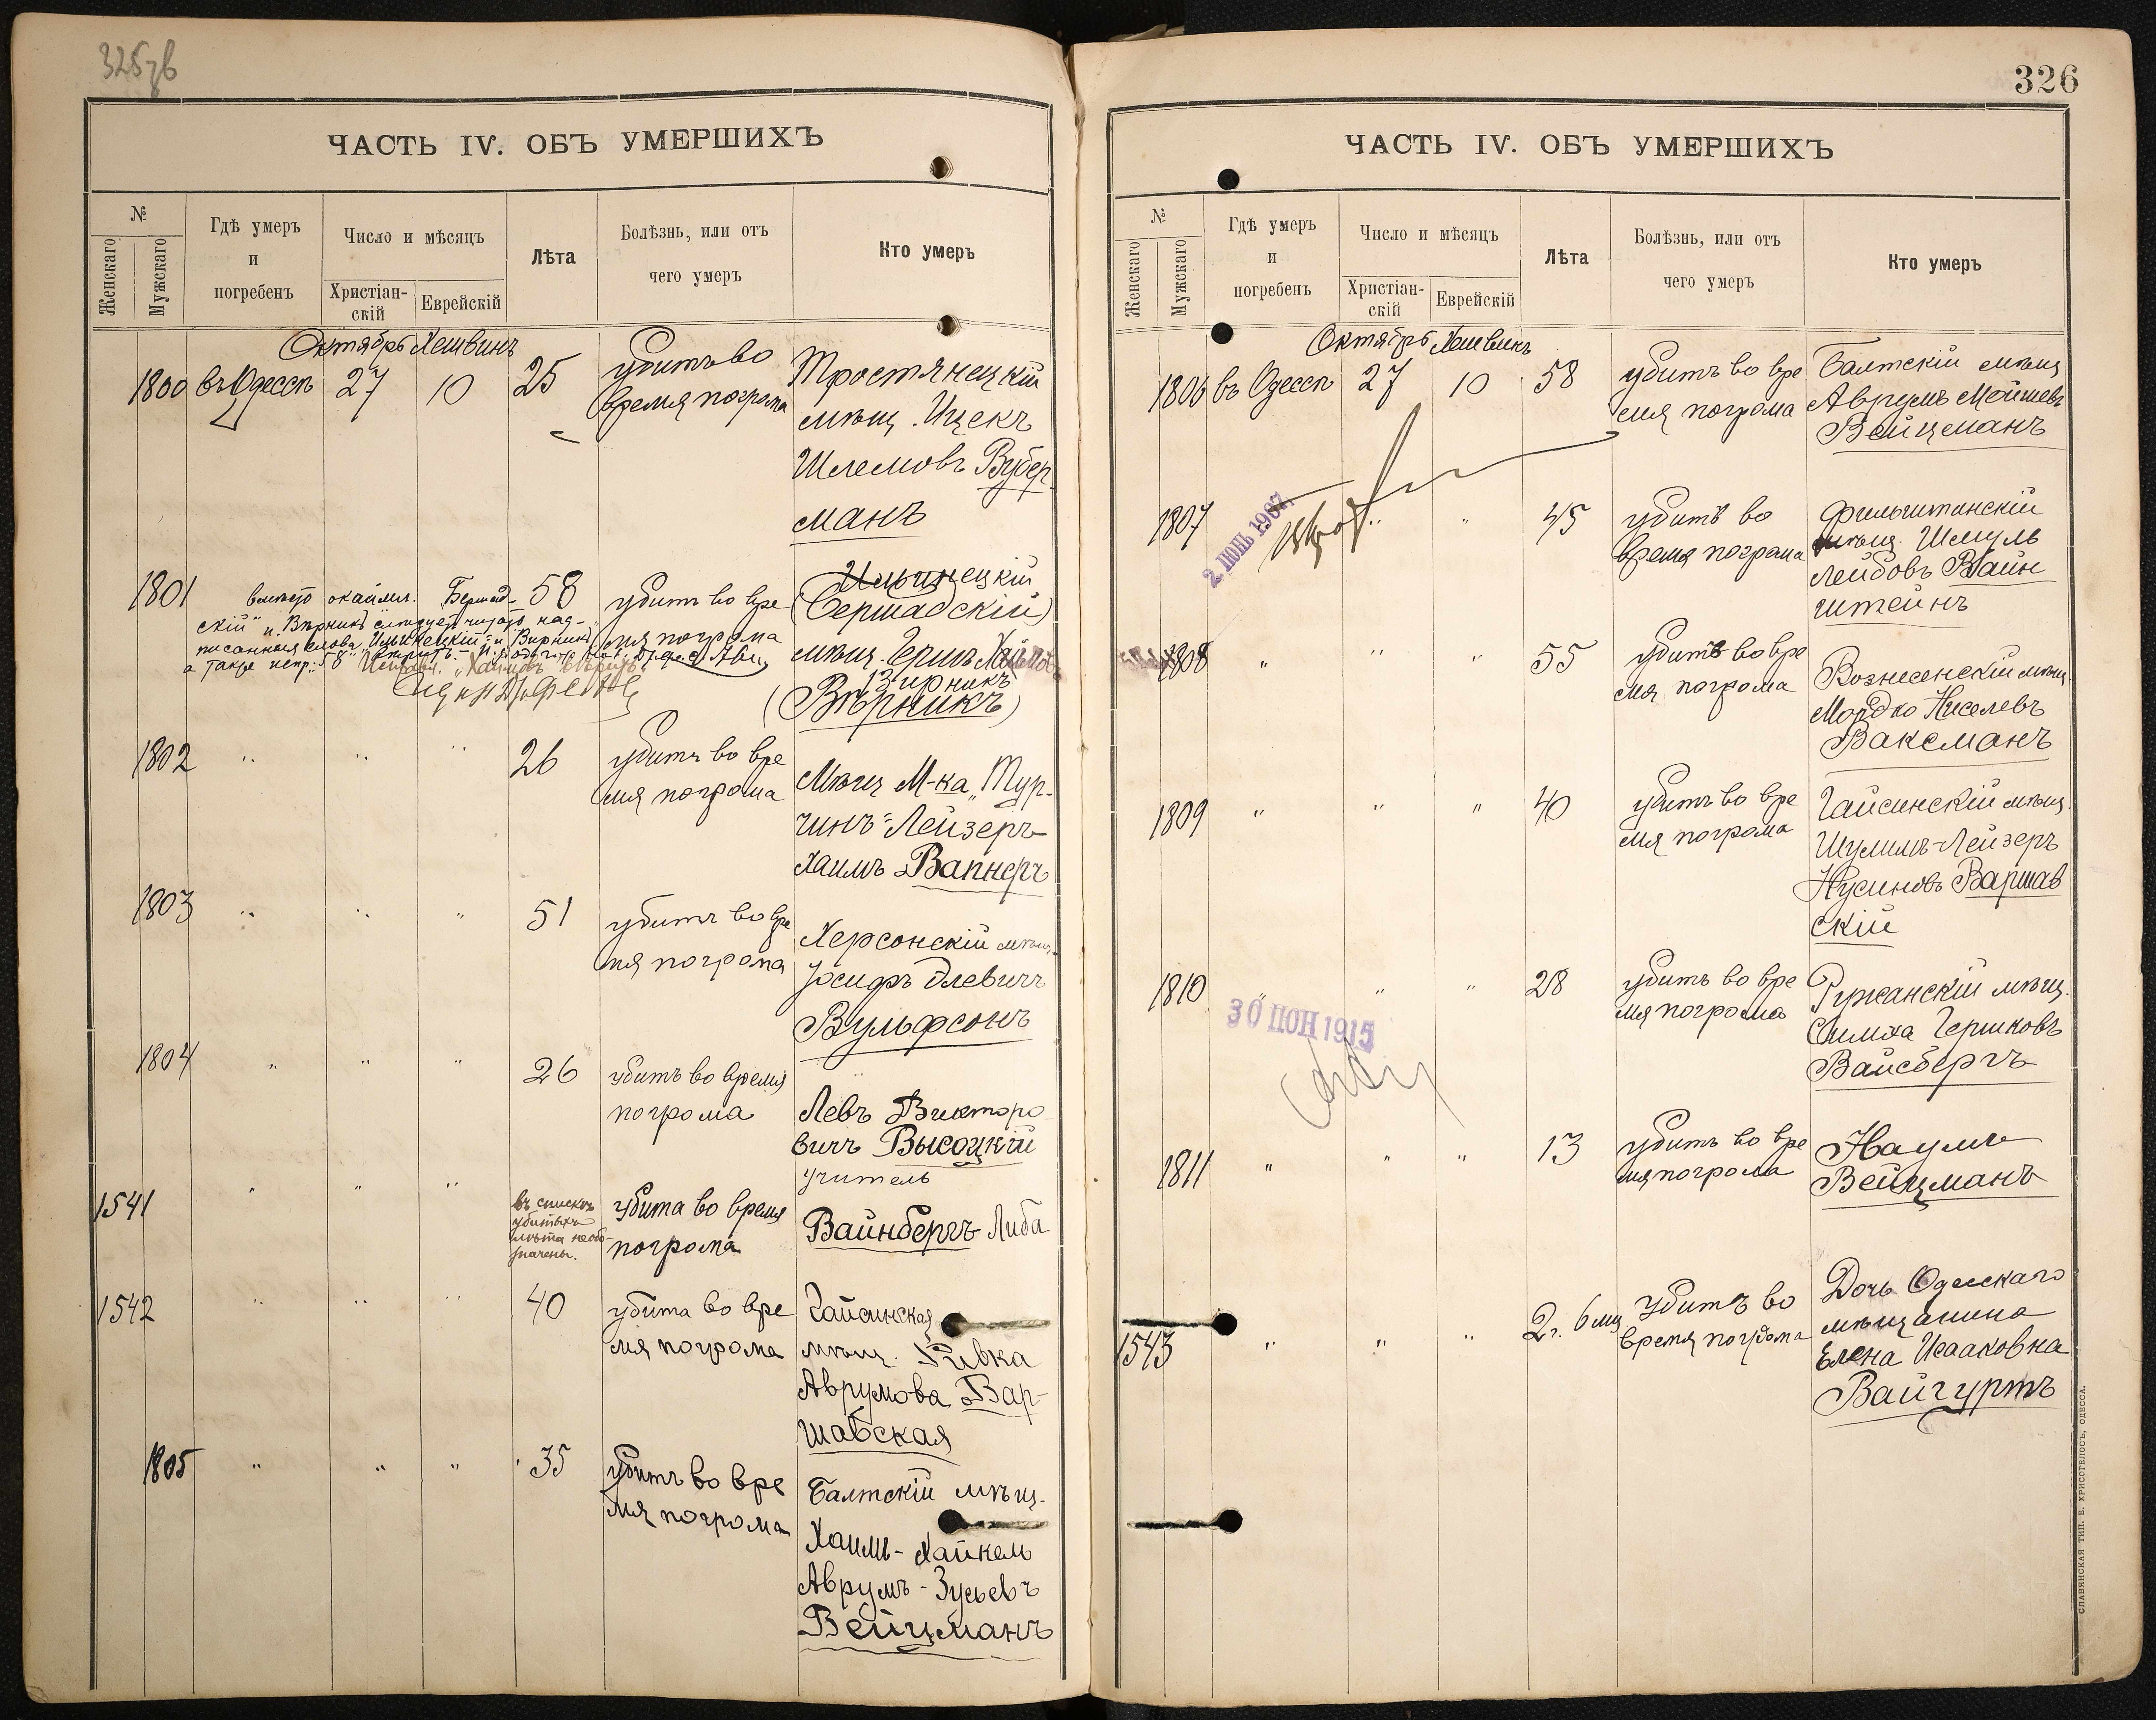 ЧАСТЬ IV. ОБЪ УМЕРШИХЪ
№
Женскаго
Мужскаго
Гдѣ умеръ
и
погребенъ
Число и мѣсяцъ
Христіан-
скій
Еврейскій
Лѣта
Болѣзнь, или отъ
чего умеръ
Кто умеръ
Октябрь Хешвинъ
1800 въ Одессѣ 27 10 25
убитъ во
время погрома
Тростянецкій
мѣщ. Ицекъ
Шлемовъ Вубер-
манъ
1801
вмѣсто окаймл. Бершад-
скій" и Вѣрникъ слѣдуетъ читать над-
писанныя слова
а также испр. "58"
58
убитъ во вре
мя погрома
Ильинецкій
(Бершадскій)
мѣщ. Гершъ
Вирникъ
(Вѣрникъ)
1802 " " " 26
убитъ во вре
мя погрома
Мѣщ. М-ка "Тур-
чинъ" Лейзеръ-
Хаимъ Вапнеръ
1803 " " " 51
убитъ во вре
мя погрома
Херсонскій мѣщ.
Іосифъ Элевичъ
Вульфсонъ
1804 " " " 26
убитъ во время
погрома
Левъ Викторо
вичъ Высоцкій
учитель
1541 " " "
въ спискѣ
убитыхъ
лѣта необо-
значены.
убита во время
погрома
Вайнбергъ Либа
1542 " " " 40
убита во вре
мя погрома
Гайсинская
мѣщ. Ривка
Аврумова Вар-
шавская
1805 " " " 35
убитъ во вре
мя погрома
Балтскій мѣщ.
Хаимъ-Хайкель
Аврумъ-Зусьевъ
Вейцманъ
326
ЧАСТЬ IV. ОБЪ УМЕРШИХЪ
№
Женскаго
Мужскаго
Гдѣ умеръ
и
погребенъ
Число и мѣсяцъ
Христіан-
скій
Еврейскій
Лѣта
Болѣзнь, или отъ
чего умеръ
Кто умеръ
Октябрь Хешвинъ
1806 въ Одессѣ 27 10 58
убитъ во вре
мя погрома
Балтскій мѣщ
Аврумъ Мошевъ
Вейцманъ
1807 " " 45
2. ИЮНЬ 1907
убитъ во
время погрома
Фельштинскій
мѣщ. Шмуль
Лейбовъ Вайн
штейнъ
1808 " " " 55
убитъ во вре
мя погрома
Вознесенскій мѣщ.
Мордко Киселевъ
Ваксманъ
1809 " " " 40
убитъ во вре
мя погрома
Гайсинскій мѣщ.
Шулимъ-Лейзеръ
Нусиновъ Варшав
скій
1810 " " " 28
30 ИОН 1915
убитъ во вре
мя погрома
Ружанскій мѣщ.
Симха Гершковъ
Вайсбергъ
1811 " " " 13
убитъ во вре
мя погрома
Наумъ
Вейцманъ
1543 " " " 2 г. 6 мц
убитъ во
время погрома
Дочь Одесскаго
мѣщанина
Елена Исааковна
Вайгуртъ
СЛАВЯНСКАЯ ТИП. Е. ХРИСОГЕЛОСЪ, ОДЕССА.